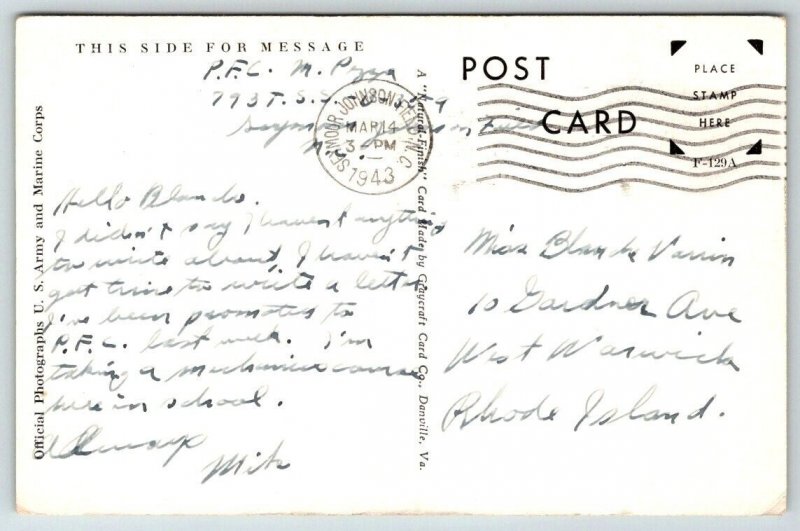 THIS SIDE FOR MESSAGE
P.F.C. M.
793 T.S.S.
N.C.
Hello
I didn't say I haven't anything
to write about I haven't
got time to write a letter
I've been promoted to
P.F.C. last week. I'm
taking a mechanics course
here in school.
Always
Mike
Official Photographs U. S. Army and Marine Corps
A "Natural-Finish" Card Made by Graycraft Card Co., Danville, Va.
SEYMOUR JOHNSON FIELD, N.C.
MAR 14
3 - PM
1943
POST
CARD
PLACE
STAMP
HERE
F-129A
Miss
10 Gardner Ave
West Warwick
Rhode Island.